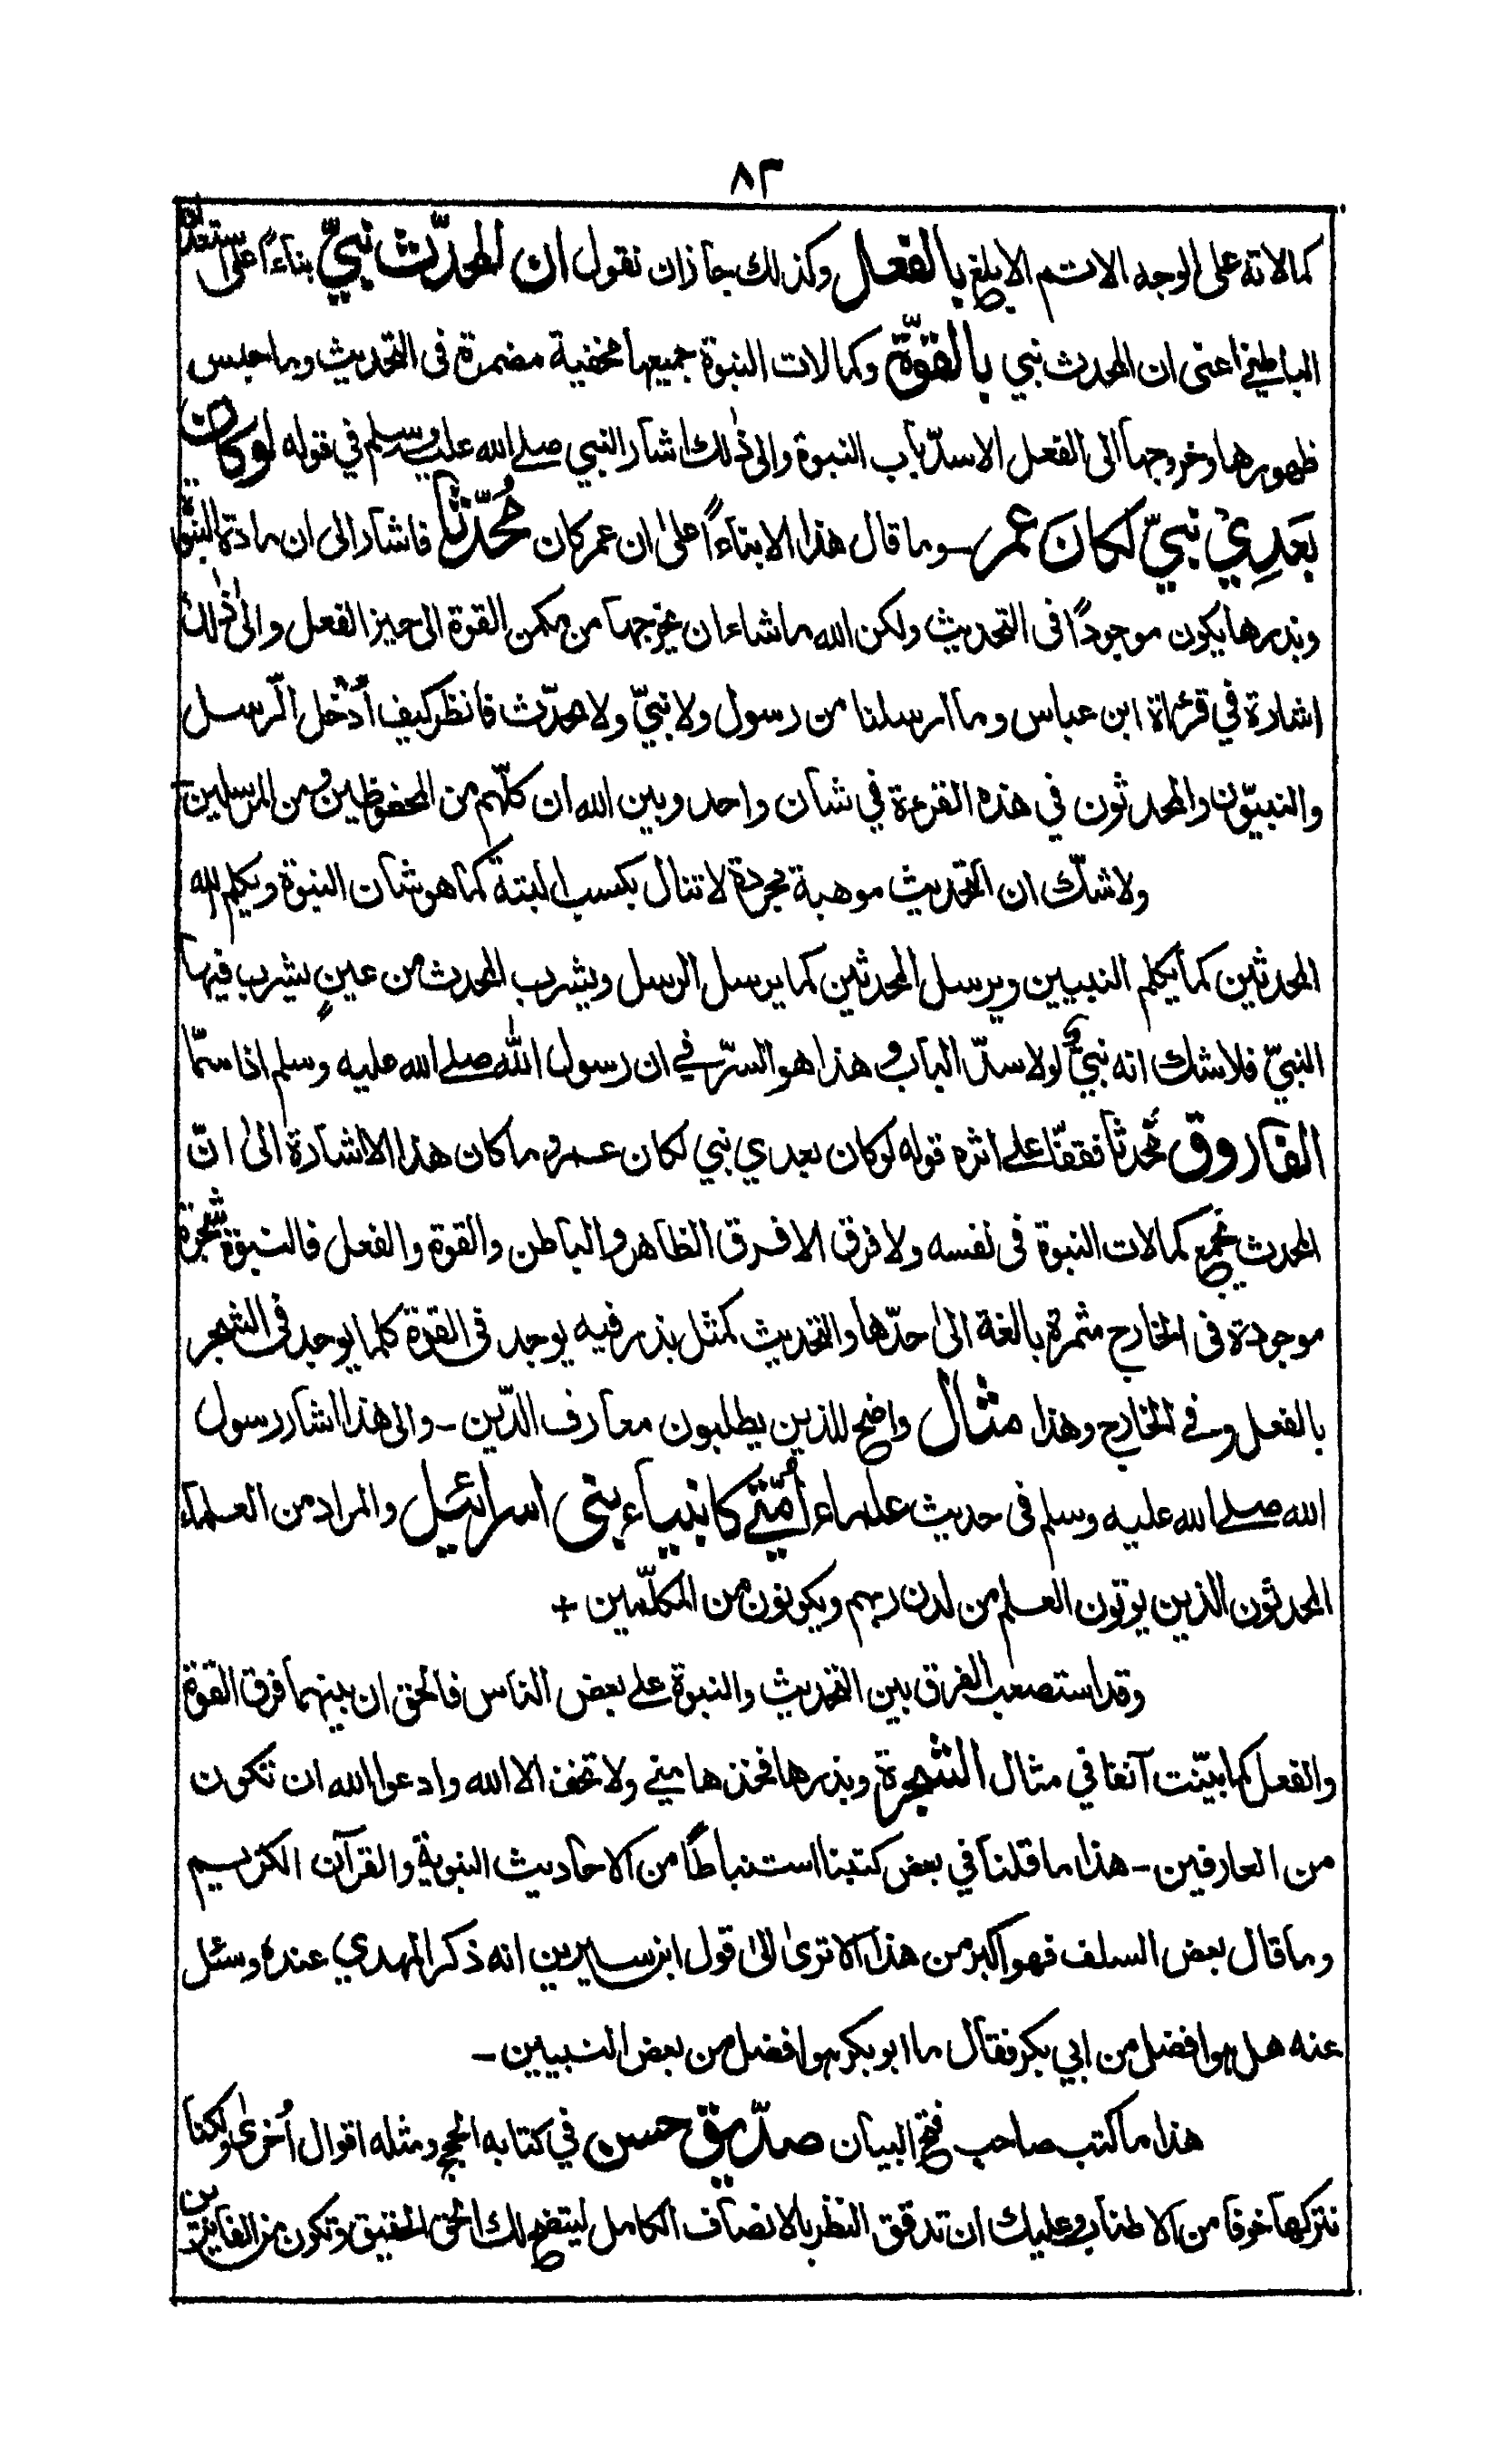 ٨٢
كمالاته على الوجه الاتم الابلغ بالفعل وكذلك جاز ان نقول ان المحدّث نبيّ بناءً على استعداده
الباطني اعنى ان المحدث نبي بالقوّة وكمالات النبوة جميعها مخفية مضمرة فى التحديث وما حبس
ظهورها وخروجها الى الفعل الا سدّ باب النبوة والى ذٰلك اشار النبي صلے الله عليه وسلم في قوله لوكان
بَعْدِيْ نبيّ لكانَ عمر ــ وما قال هذا الا بناءً على ان عمر كان مُحَدَّثاً فاشار الى ان مادة النبوّة
وبذرها يكون موجودًا فى التحديث ولكن الله ما شاء ان يخرجها من مكمن القوة الى حيز الفعل والىٰ ذٰلك
اشارة في قرءاة ابن عباس وما ارسلنا من رسول ولا نبيّ ولا محدّث فانظر كيف اُدْخل الرّسل
والنبيّون والمحدثون في هذه القرءة في شان واحد وبين الله ان كلّهم من المحفوظين ومن المرسلين ــ
ولا شكّ ان التحديث موهبة مجردة لا تنال بكسب البتة كما هو شان النبوة ويكلم الله
المحدثين كما يكلم النبيين ويرسل المحدثين كما يرسل الرسل ويشرب المحدث من عينٍ يشرب فيها
النبيّ فلا شك انه نبيٌّ لولا سدّ الباب وهذا هو السرّ في ان رسول الله صلے الله عليه وسلم اذا سمّا
الفاروق مُحدثا فقفّا على اثره قوله لوكان بعدي نبي لكان عمر وما كان هذا الا اشارة الىٰ انّ
المحدث يجمع كمالات النبوة فى نفسه ولا فرق الا فرق الظاهر والباطن والقوة والفعل فالنبوّة شجرة
موجودة فى الخارج مثمرة بالغة الىٰ حدّها والتحديث كمثل بذر فيه يوجد فى القوة كلما يوجد فى الشجر
بالفعل وفي الخارج وهذا مثال واضح للذين يطلبون معارف الدّين ــ والى هذا اشار رسول
الله صلے الله عليه وسلم فى حديث علماء اُمّتي كانبياء بنى اسرائيل والمراد من العلماء
المحدثون الذين يوتون العلم من لدن ربهم ويكونون من المكلّمين +
وقد استصعب الفرق بين التحديث والنبوة على بعض الناس فالحق ان بينهما فرق القوة
والفعل كما بيّنت آنفا في مثال الشجرة وبذرها فخذها مني ولا تخف الا الله وادعوا الله ان تكون
من العارفين ــ هذا ما قلنا في بعض كتبنا استنباطًا من الاحاديث النبوية والقرآن الكريم
وما قال بعض السلف فهو اكبر من هذا الا ترىٰ الىٰ قول ابن سيرين انه ذكر المهدي عنده وسئل
عنه هل هو افضل من ابي بكر فقال ما ابو بكر هو افضل من بعض النبيين ــ
هذا ما كتب صاحب فتح البيان صدّيق حسن في كتابه الحجج ومثله اقوال اُخرىٰ ولكنا
نتركها خوفا من الاطناب وعليك ان تدقق النظر بالانصاف الكامل ليتضح لك الحق الحقيق وتكون من الفايزين